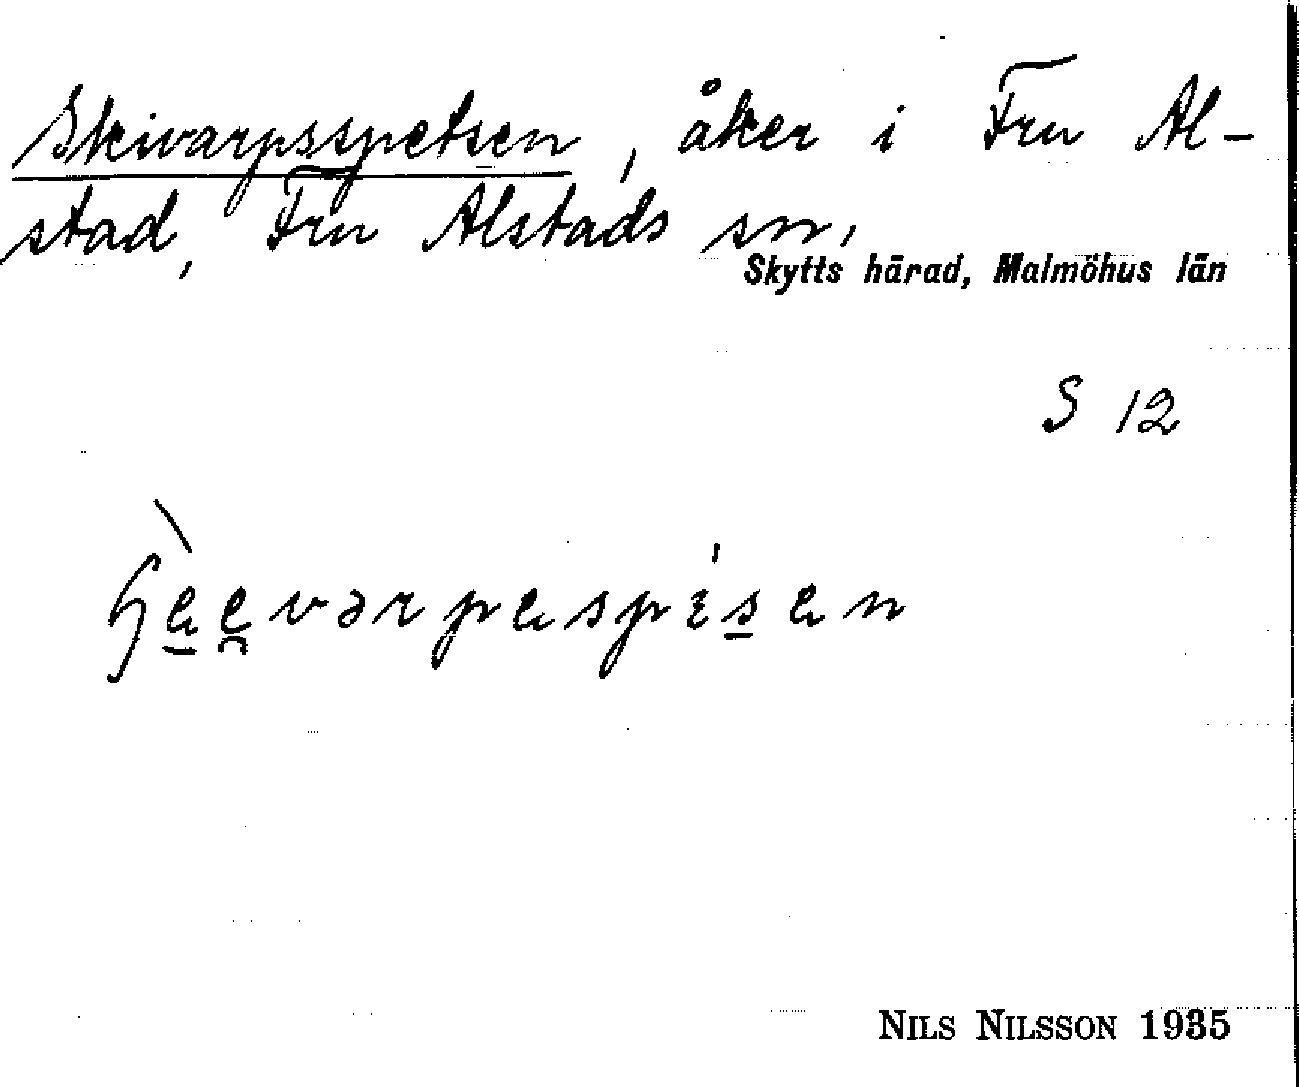 Skivarpsspetsen, åker i Fru Al-
stad, Fru Alstads sn,
Skytts härad, Malmöhus län
S 12
NILS NILSSON 1935